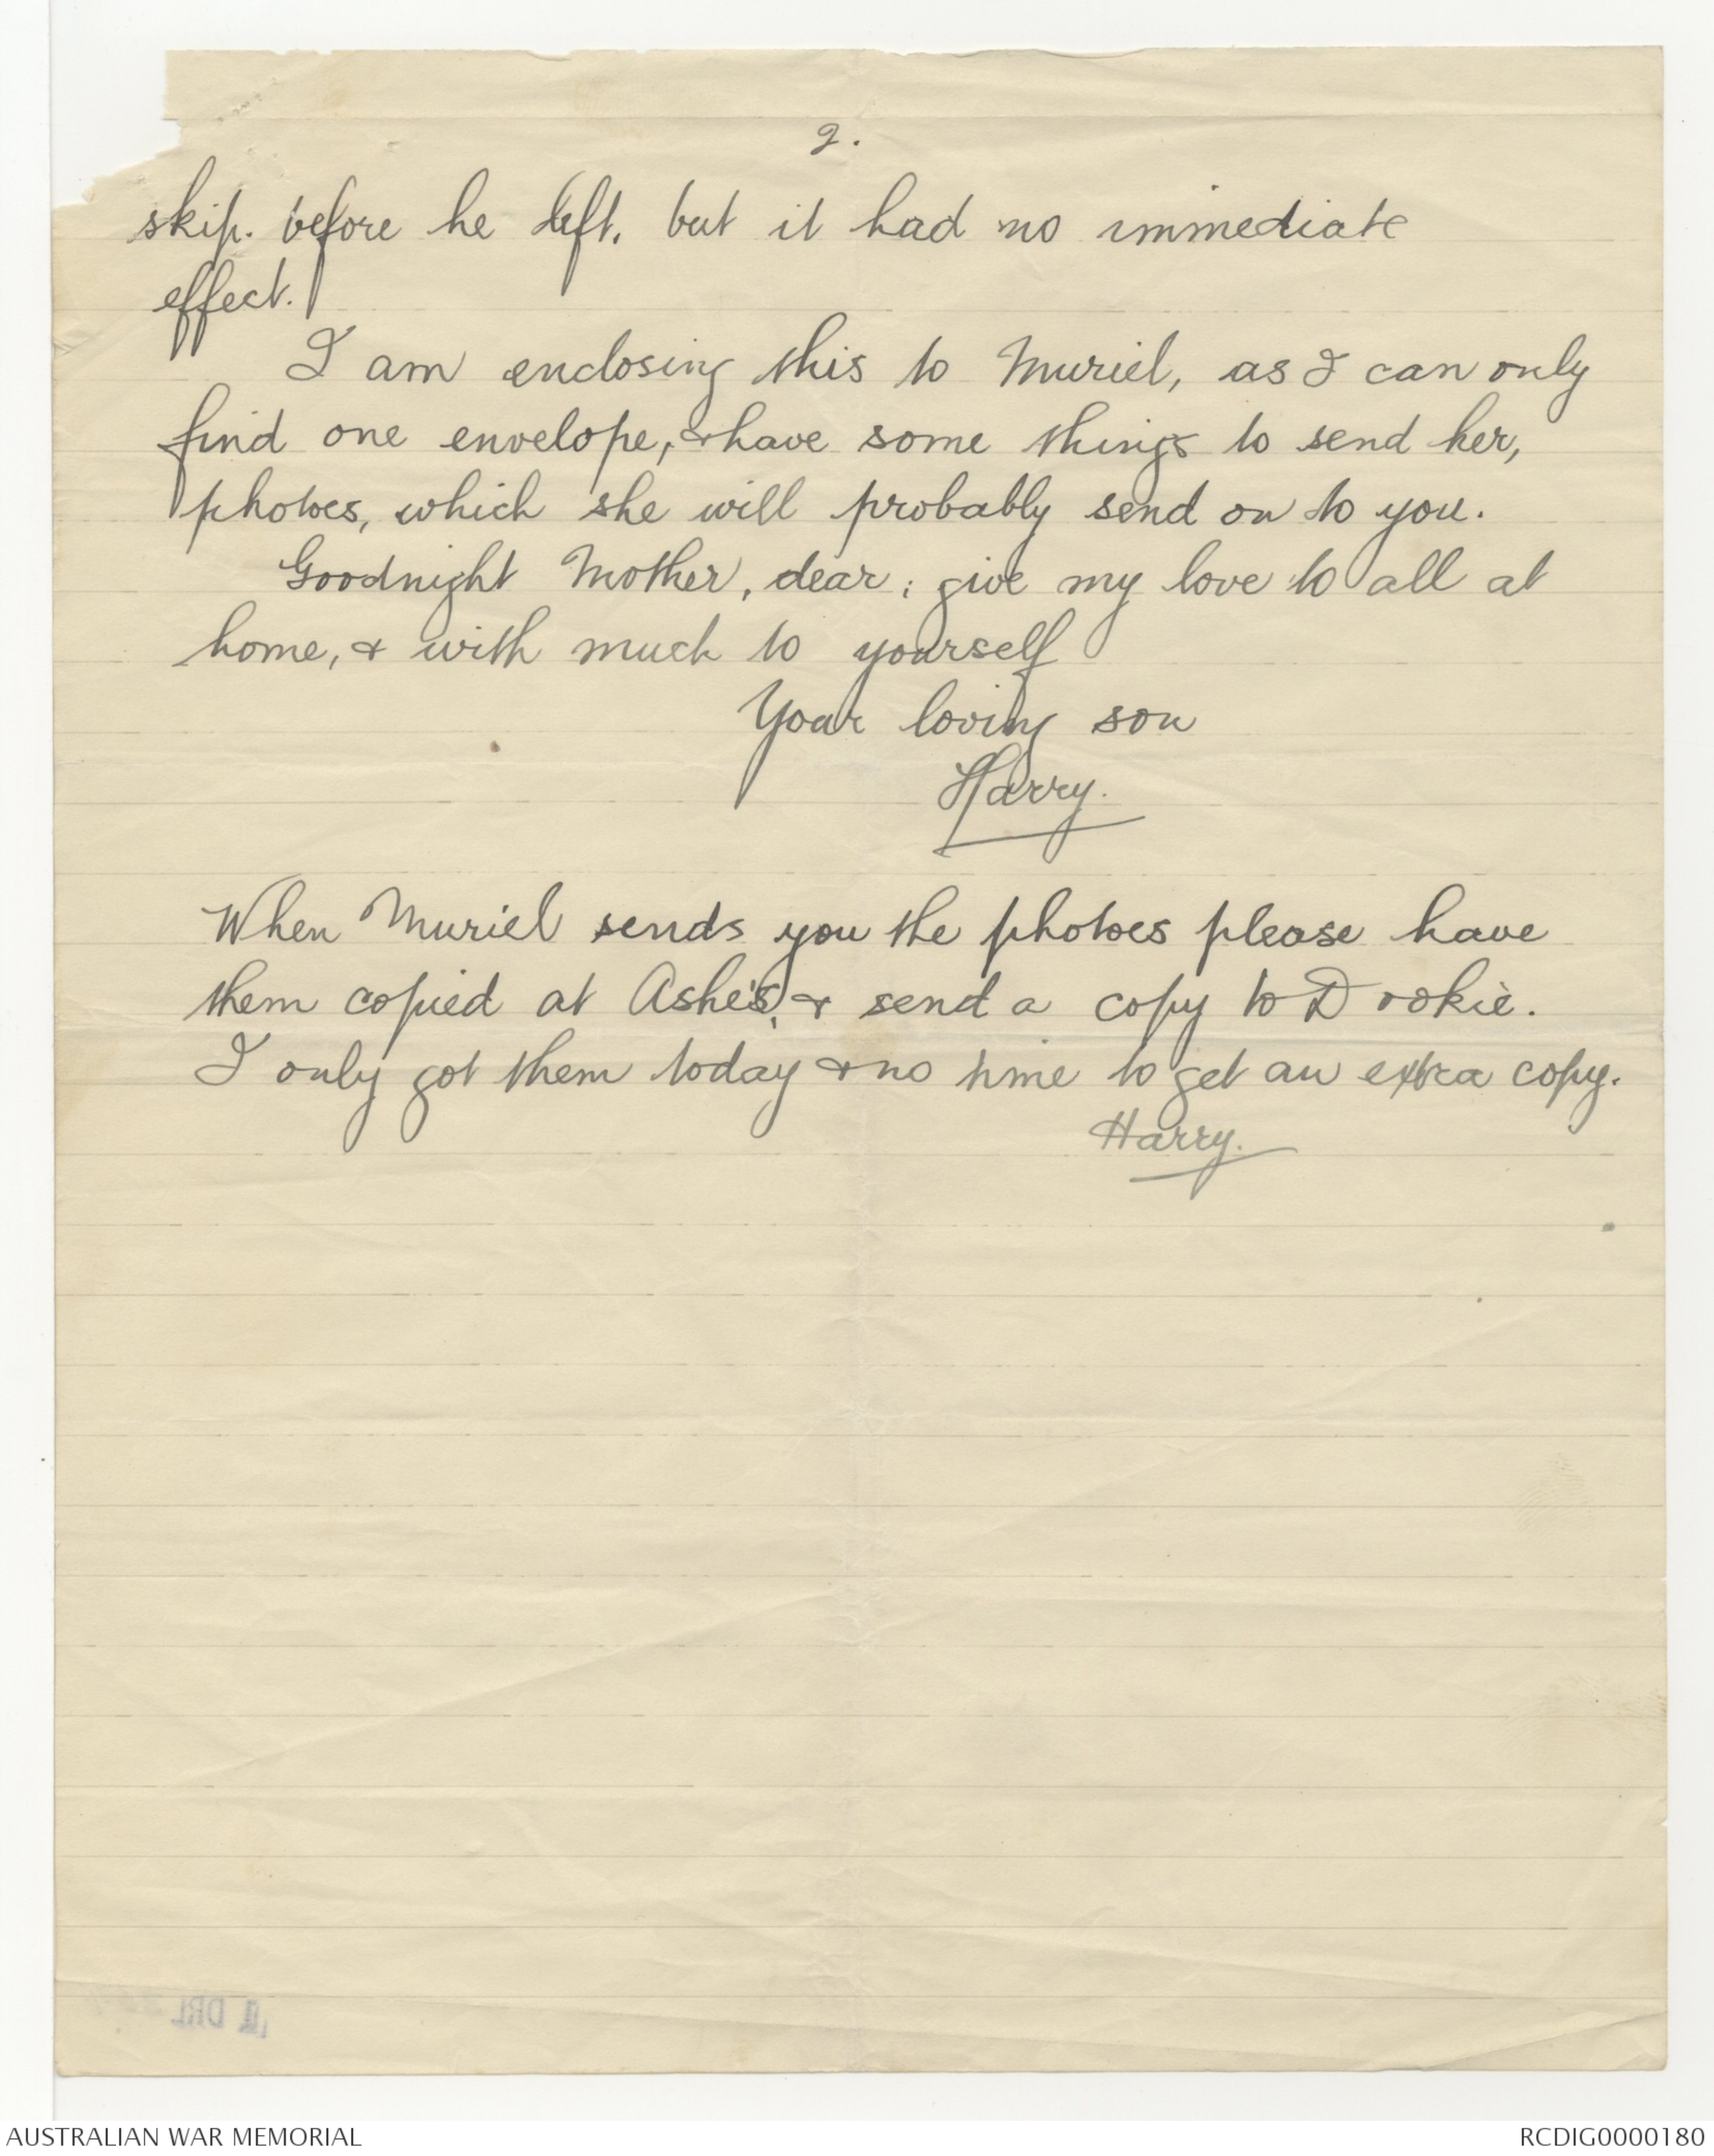 2.
skip. before he left, but it had no immediate
effect.
I am enclosing this to Muriel, as I can only
find one envelope, & have some things to send her,
photoes, which she will probably send on to you.
Goodnight Mother, dear; give my love to all at
home, & with much to yourself
Your loving son
Harry.
When Muriel sends you the photoes please have
them copied at Ashe's, & send a copy to Dookie.
I only got them today & no time to get an extra copy.
Harry.
DRL
AUSTRALIAN WAR MEMORIAL
RCDIG0000180